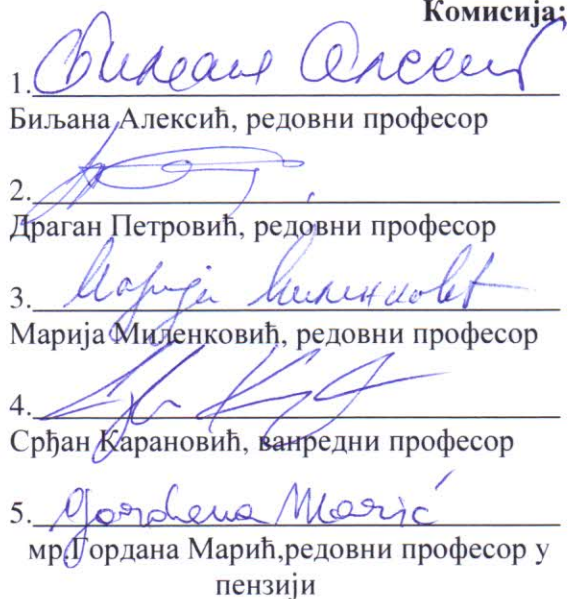 Комисија:
1. Биљана Алексић
Биљана Алексић, редовни професор
2.
Драган Петровић, редовни професор
3. Марија Миленковић
Марија Миленковић, редовни професор
4.
Срђан Карановић, ванредни професор
5. Gordana Marić
мр Гордана Марић,редовни професор у
пензији